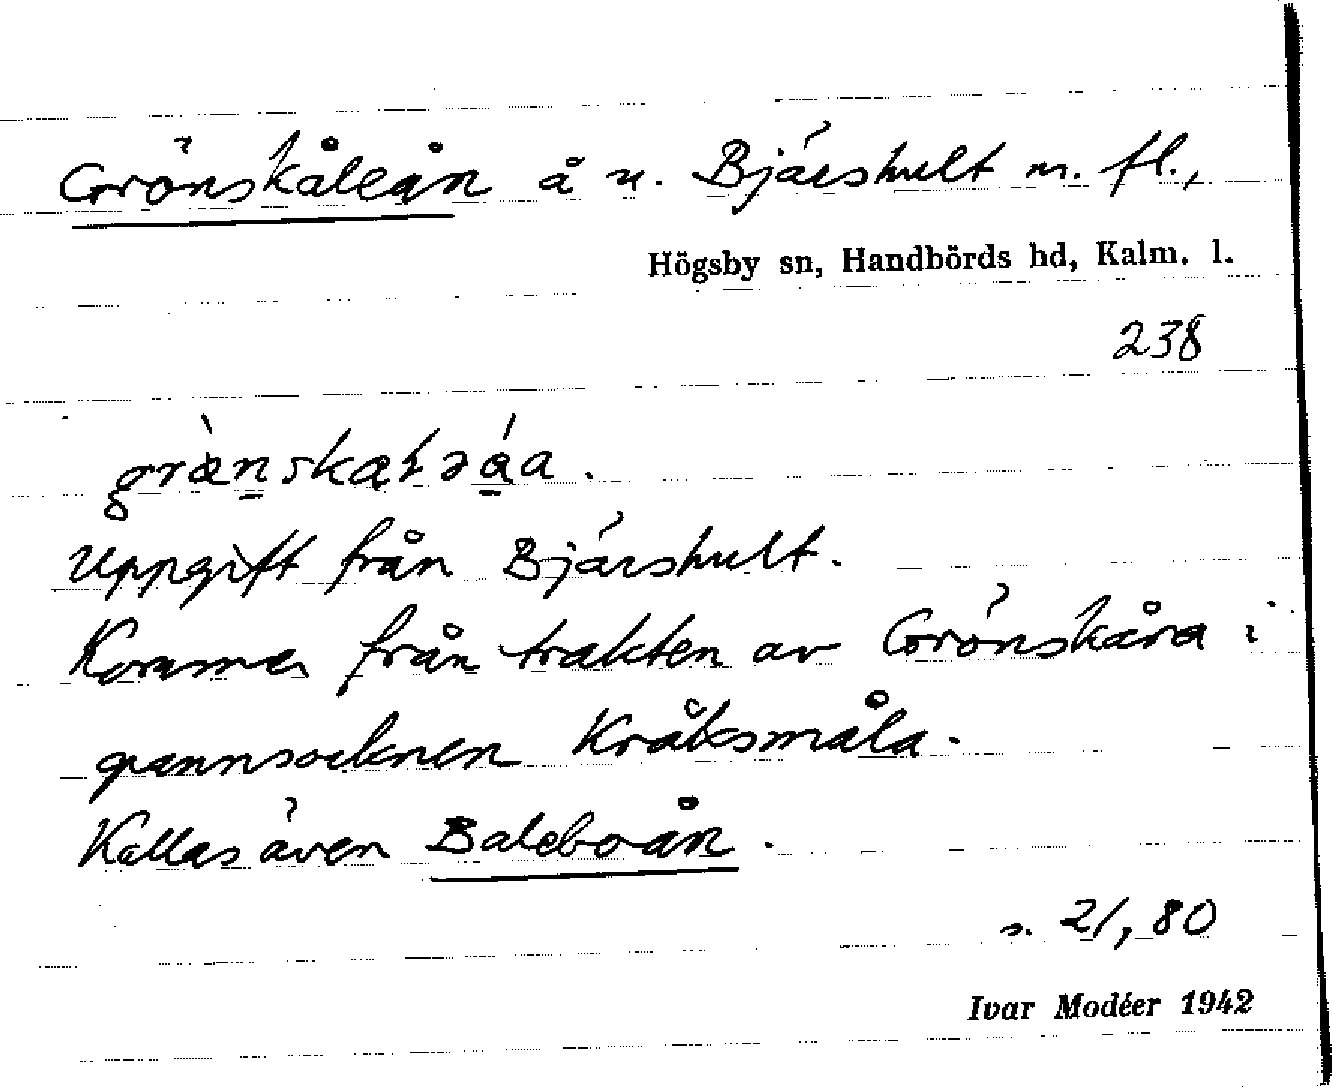 Grönskåleån å u. Bjärshult m. fl.,
Högsby sn, Handbörds hd, Kalm. l.
238
Uppgift från Bjärshult.
Kommer från trakten av Grönskåra i
grannsocknen Kråksmåla.
Kallas även Baleboån.
s. 21, 80
Ivar Modéer 1942